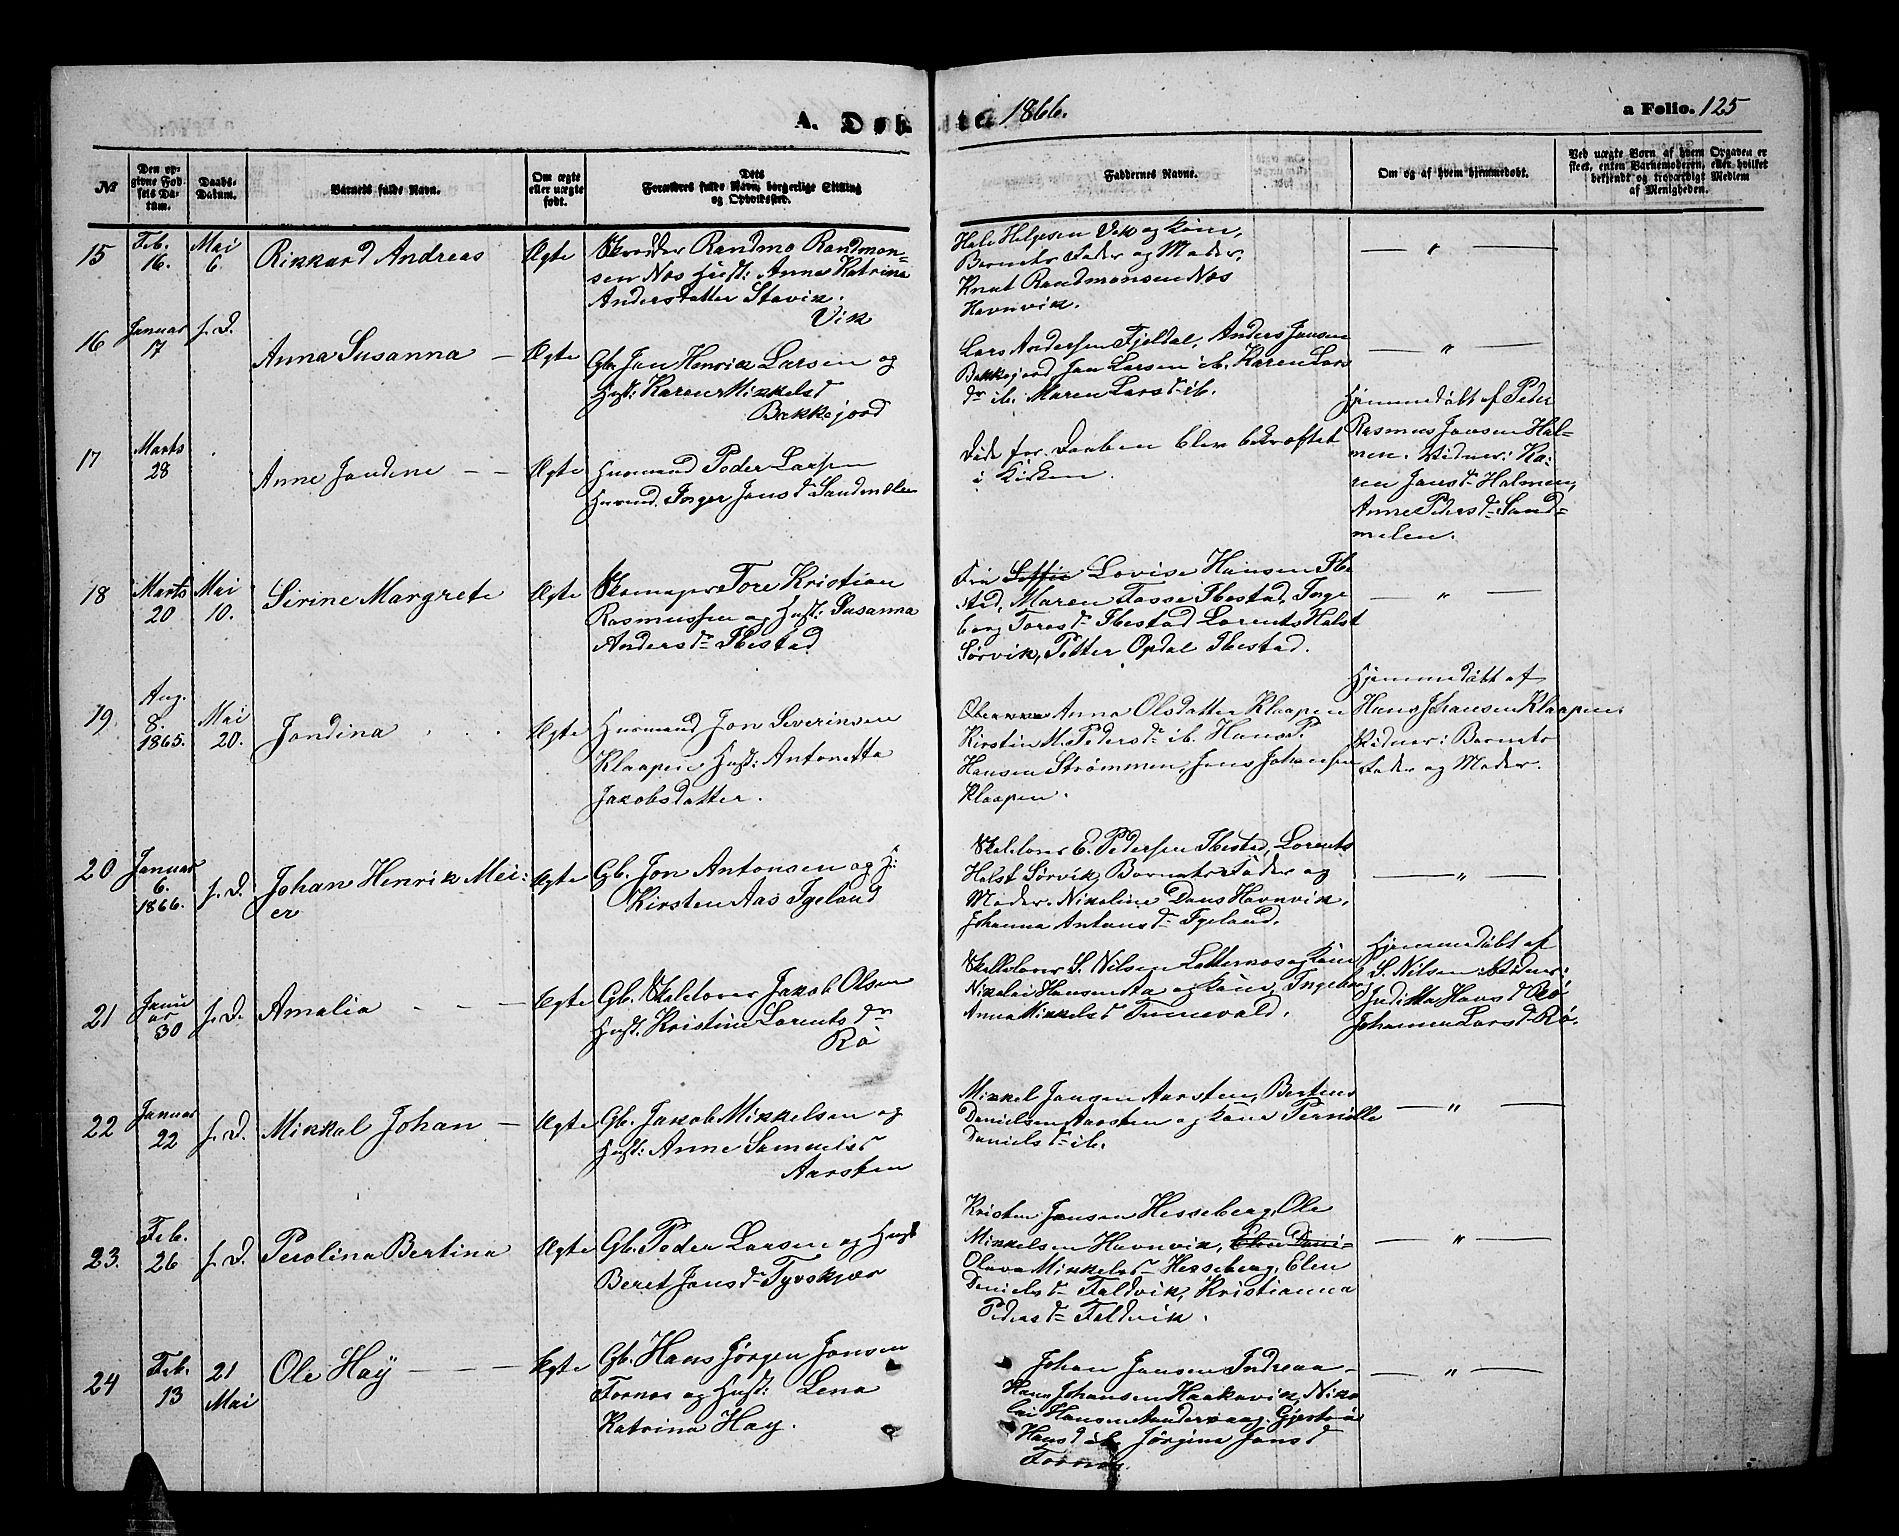 A. Døbte 1866. a Folio. 125
№ Den opgivne Fødsels Datum. Daabs-Datum. Barnets fulde Navn. Om ægte eller uægte født. Dets Forældres fulde Navn, borgerlige Stilling og Opholdssted. Faddernes Navne. Om og af hvem hjemmedøbt. Ved uægte Børn af hvem Opgaven er skeet, enten Barnemoderen, eller hvilket bekjendt og troværdigt Medlem af Menigheden.
15 Feb. 16. Mai 6. Rikkard Andreas Ægte
Skrædder Randmo Randmon-
sen Næs Hust: Anna Katrina
Andersdatter Stavik.
Helgesen Vik og Kone,
Barnets Fader og Moder,
Knut Randmonsen Næs
Havnvik.
— " —
16 Januar 17 s. D. Anna Susanna — Ægte
Vik
Gb. Jon Henrik Larsen og
Hust: Karen Mikkelsd
Bakkejord
Lars Andersen Fjeldal, Anders Jonsen
Bakkejord Jon Larsen ib. Karen Lars
dr ib. Maren Larsd ib.
— " —
17 Marts 28 . Anne Jondine — — Ægte
Husmand Peder Larsen
Inger Jonsd Sandmælen
Døde før Daaben blev bekræftet
i Kirken.
Hjemmedøbt af Peder
Rasmus Jonsen Hal-
men. Vidner: Ka-
ren Jonsd Halmen,
Anne Pedersd Sand-
melen.
18 Marts 20 Mai 10. Sirine Margrete Ægte
Skomager Tore Kristian
Rasmussen og Hust: Susanna
Andersd Ibestad
Lovise Hansen Ibe
stad, Maren Fosse Ibestad, Inge
borg Toresd Ibestad Lorents Holst
Sørvik, Petter Opdal Ibestad.
— " —
19. Aug. 8. 1865. Mai 20. Jondina . . . Ægte
Husmand Jon Severinsen
Klaapen Hust: Antonetta
Jakobsdatter.
Anna Olsdatter Klaapen
Kirstin M. Pedersd ib. Hans P.
Hansen Strømmen, Jens Johansen
Klaapen.
Hjemmedøbt af
Hans Johansen Klaapen.
Vidner: Barnets
Fader og Moder.
20 Januar 6. 1866. s. D. Johan Henrik Mei-
er
Ægte
Gb. Jon Antonsen og H:
Kirsten Aas Igeland
Skolelærer E. Pedersen Ibestad, Lorents
Holst Sørvik, Barnets Fader og
Moder. Nikoline Dons Havnvik,
Johanna Antonsd Igeland.
— " —
21 Janu
ar
30 s. D. Amalia — — — Ægte
Gb. Skolelærer Jakob Olsen
Hust: Kristine Lorentsdr
Rø
S. Nilsen og Kone
Nikolai Hansen Aa og Kone, Ingebor
Anna Mikkelsd
Hjemmedøbt af
S. Nilsen Vidner:
Inditta Hansd Rø
Johanna Larsd Rø.
22 Januar 22 s. D. Mikkal Johan — Ægte
Gb. Jakob Mikkelsen og
Hust: Anne Samuelsd
Aarsten
Mikkel Jonsen Aarsten, Berteus
Danielsen Aarsten og Kone Pernille
Danielsd ib.
— " —
23. Feb. 26 s. D. Perolina Bertina Ægte
Gb. Peder Larsen og Hust
Beret Jonsd Tyvskjær
Kristen Jensen Hesseberg, Ole
Mikkelsen Havnvik,
Olava Mikkelsd Hesseberg, Elen
Danielsd Faldvik, Kristianna
Pedersd Faldvik.
— " —
24 Feb. 13 21 Mai Ole Haÿ — — — Ægte
Gb. Hans Jørgen Jonsen
Fornæs og Hust: Lena
Katrina Hay.
Johan Jansen Indreaa
Hans Johansen Haakavik, Niko
lai Hansen
Hansd ib. Jørgine Jonsd
Fornæs.
— " —